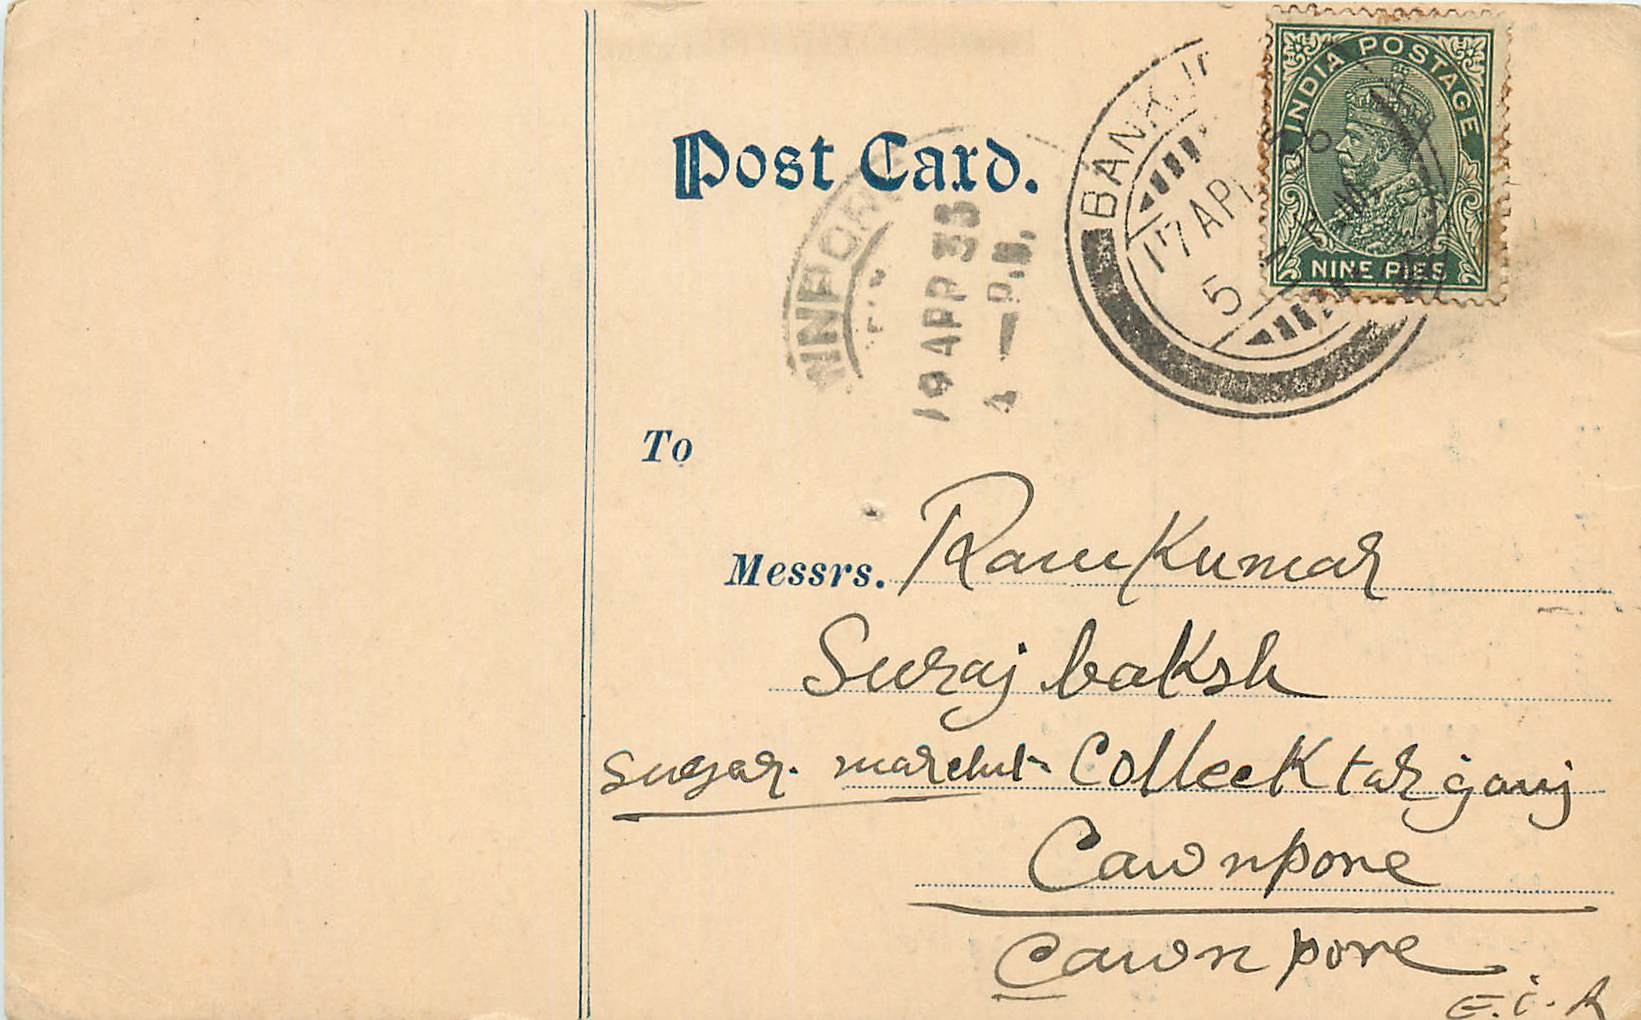 Post Card.
INDIA POSTAGE
NINE PIES
BANK
17 AP
5
NPORE
19 APR 35
4 — P.M.
To
Messrs. Ram Kumar
Suraj baksh
sugar. marchnt- Collecktar ganj
Cawnpore
Cawnpore
E.i.R